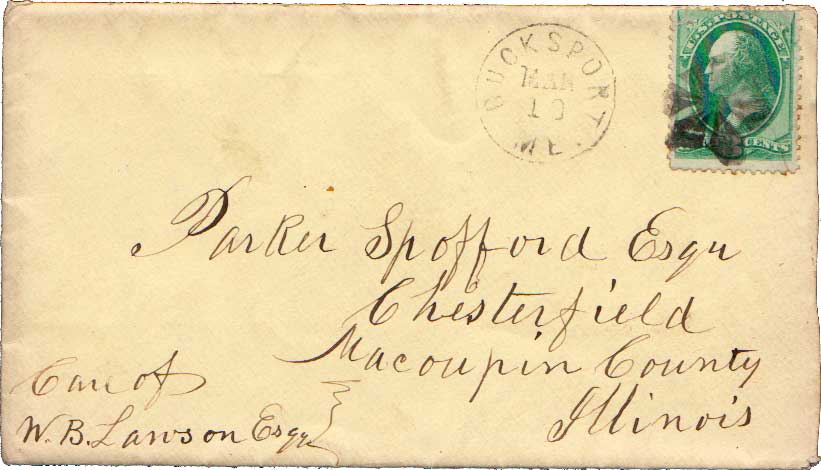 BUCKSPORT
MAR
ME.
U.S. POSTAGE
CENTS
Parker Spofford Esqu
Chesterfield
Macoupin County
Illinois
Care of
W. B. Lawson Esqu